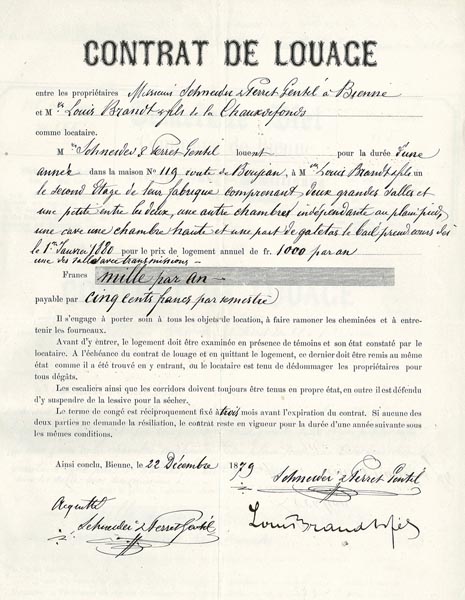 CONTRAT DE LOUAGE
entre les propriétaires Messieurs Schneider & Perret Gentil à Bienne
et M rs Louis Brandt & fils de la Chauxdefonds
comme locataire.
M rs Schneider & Perret Gentil louent pour la durée d'une
année dans la maison No 119 route de Boujean, à M rs Louis Brandt & fils un
le second étage de leur fabrique comprenant deux grandes salles et
une petite entre les deux, une autre chambre indépendante au plain pied,
une cave une chambre haute et une part de galetas le bail prend cours dès
le 1er Janvier 1880 pour le prix de logement annuel de fr. 1000 par an
une des salles avec transmissions —
Francs mille par an —
payable par cinq cents francs par semestre
Il s'engage à porter soin à tous les objets de location, à faire ramoner les cheminées et à entre-
tenir les fourneaux.
Avant d'y entrer, le logement doit être examinée en présence de témoins et son état constaté par le
locataire. A l'échéance du contrat de louage et en quittant le logement, ce dernier doit être remis au même
état comme il a été trouvé en y entrant, ou le locataire est tenu de dédommager les propriétaires pour
tous dégâts.
Les escaliers ainsi que les corridors doivent toujours être tenus en propre état, en outre il est défendu
d'y suspendre de la lessive pour la sécher.
Le terme de congé est réciproquement fixé à trois mois avant l'expiration du contrat. Si aucune des
deux parties ne demande la résiliation, le contrat reste en vigueur pour la durée d'une année suivante sous
les mêmes conditions.
Ainsi conclu, Bienne, le 22 Décembre 1879
Schneider & Perret Gentil
Schneider & Perret Gentil
Louis Brandt & fils